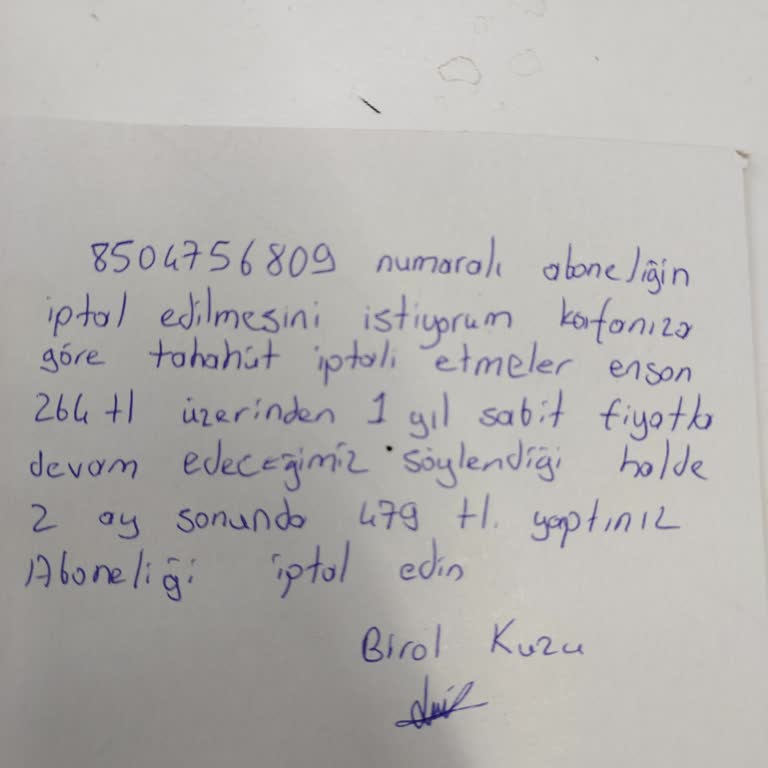 8504756809 numaralı aboneliğin
iptal edilmesini istiyorum kafanıza
göre tahahüt iptali etmeler enson
264 tl üzerinden 1 yıl sabit fiyatla
devam edeceğimiz söylendiği halde
2 ay sonunda 479 tl. yaptınız
Aboneliği iptal edin
Birol Kuzu